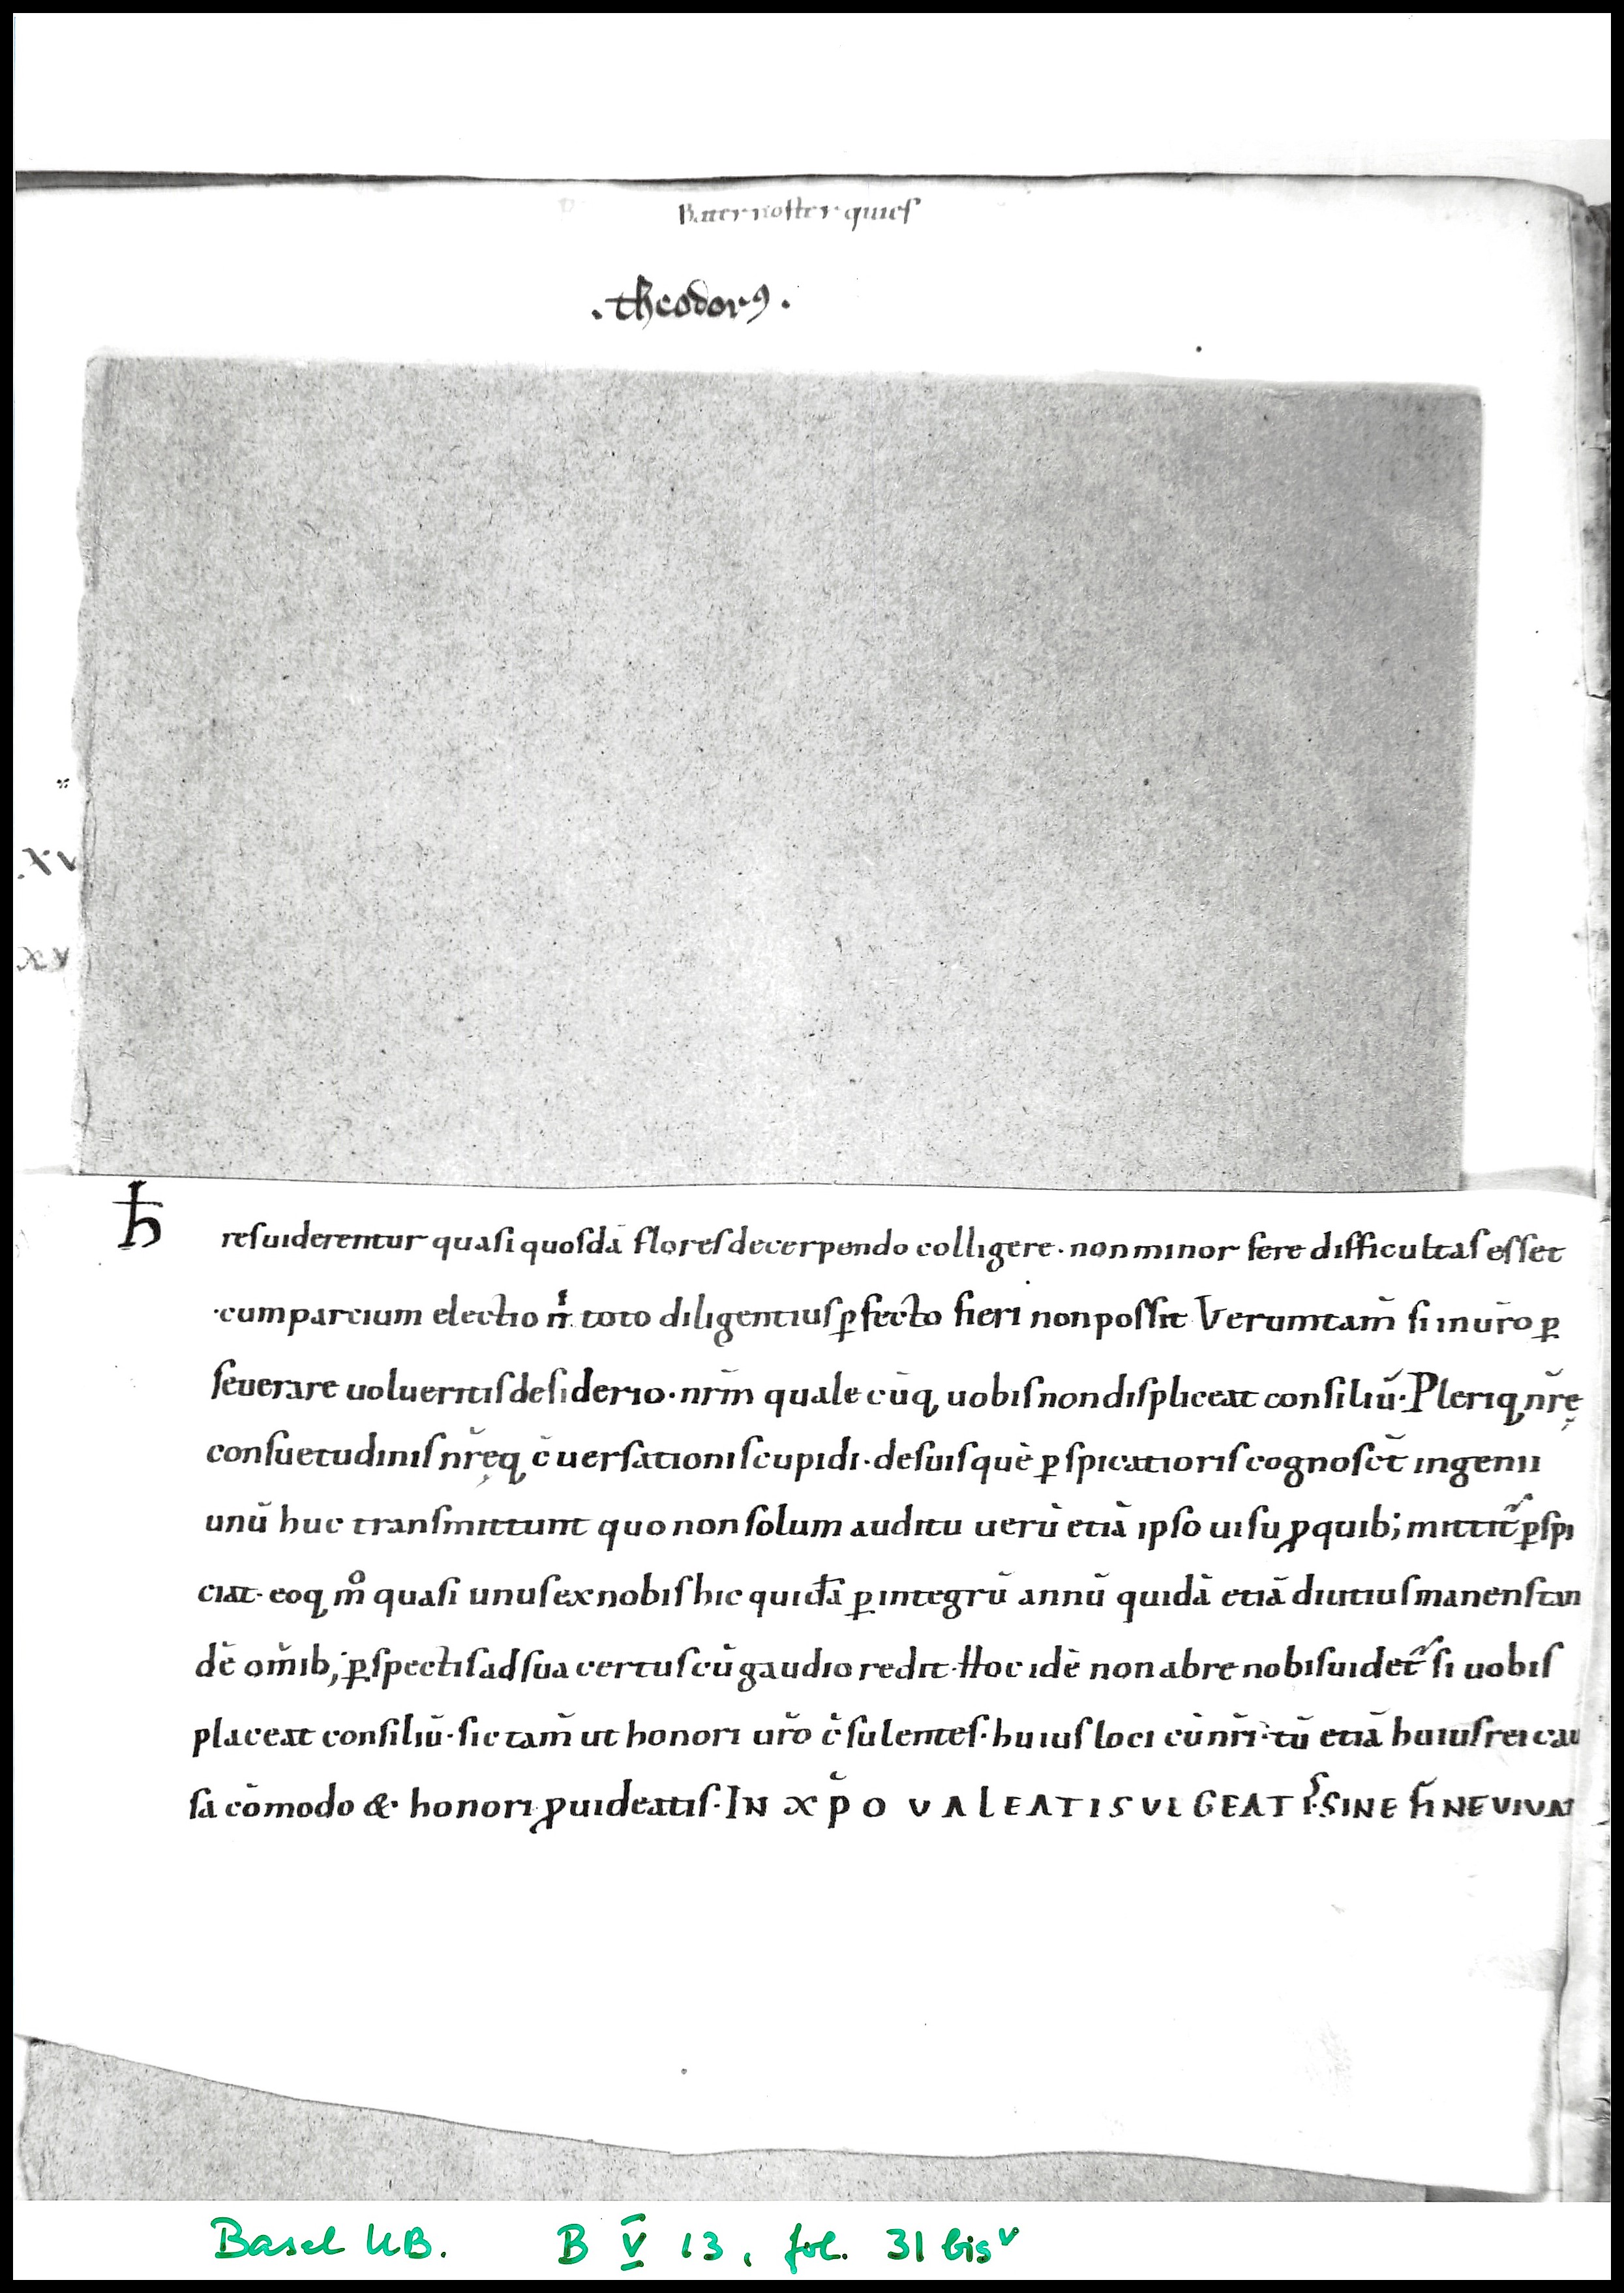 Pater noster qui eſ
.theodorꝰ.
.XV
XV
ħ
reſ uiderentur quaſi quoſdā floreſ decerpendo colligere · non minor fere difficultaſ eſſet
·cum parcium electio ñ toto diligentiuſ ꝑfecto fieri non poſſit Verumtam̄ ſi in ur̄o ꝑ
ſeuerare uolueritiſ deſiderio · nrm̄ qualecūq, uobiſ non diſpliceat conſiliū · Pleriq, nr̄ę
conſuetudiniſ nr̄ęq, c̄uerſationiſ cupidi · de ſuiſ quē ꝑſpicatioriſ cognoſct̄ ingenii
unū huc tranſmittunt quo non ſolum auditu uerū etiā ipſo uiſu ꝓ quib; mittit᷑ ꝑſpi
ciat · eoq, m̊ quaſi unuſ ex nobiſ hic quidā ꝑ integrū annū quidā etiā diutiuſ manenſ tan
dē om̄ib; ꝑſpectiſ ad ſua certuſ cū gaudio redit · Hoc idē non ab re nobiſ uidet᷑ ſi uobiſ
placeat conſiliū · ſic tam̄ ut honori ur̄o c̄ſulenteſ · huiuſ loci cū nr̄i · tū etiā huiuſ rei cau
ſa cōmodo & honori ꝓuideatiſ · IN XP̄O VALEATIS VIGEATIS · SINE FINE VIVAT
Basel UB. B V 13, fol. 31 bisᵛ